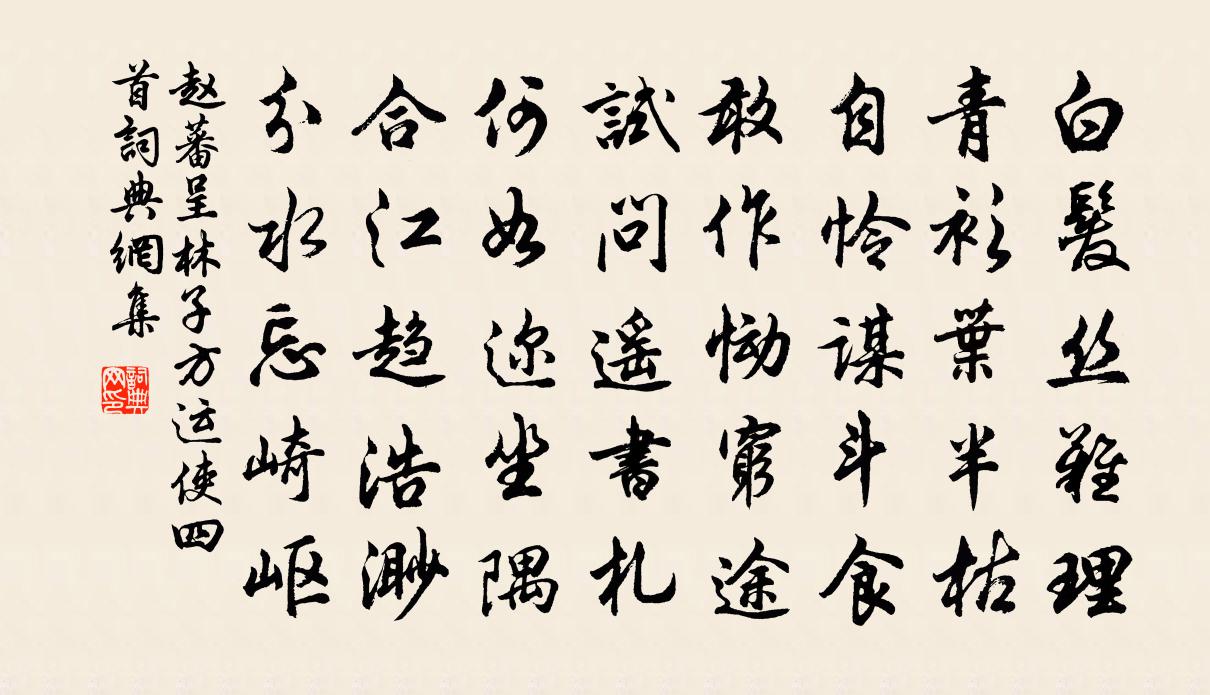 白髮丝難理
青衫葉半枯
自怜謀斗食
敢作慟窮途
試問遥書札
何如迩坐隅
合江趋浩渺
分水忘崎岖
赵蕃呈林子方运使四
首詞典網集
詞典網印